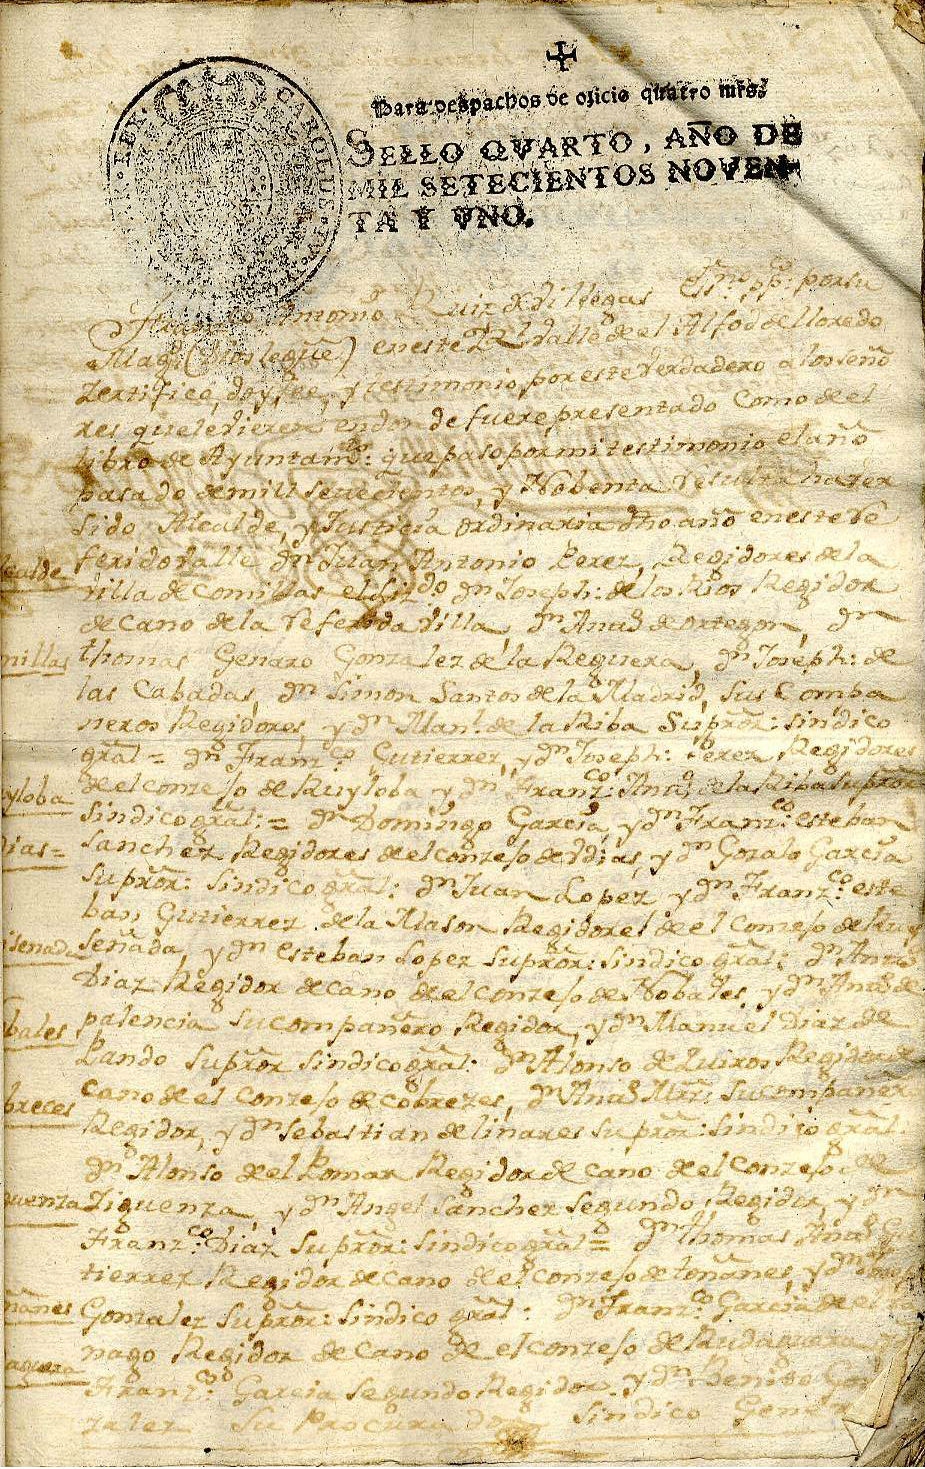 CAROLUS IV
REX
Para despachos de oficio quatro mrs.
SELLO QVARTO, AÑO DE
MIL SETECIENTOS NOVEN-
TA Y VNO.
Franco Antonio Ruiz de Villegas Essno pp: por su
Magd (Dios legue) en este Rl Valle de el Alfoz de lloredo
Zertifico, doy fee, y testimonio por este verdadero a los seño
res que le vieren en donde fuere presentado Como de el
libro de Ayuntamto: que paso por mi testimonio el año
pasado de mill setecientos, y Nobenta Resulta haver
Sido Alcalde, y Justicia ordinaria dho año en este Re
ferido valle dn Juan Antonio Perez, Regidores de la
villa de Comillas el dn Joseph: de los Rios Regidor
decano de la referida villa, dn de ortegon, dn
thomas Genaro Gonzalez de la Reguera, dn Joseph: de
las Cabadas, dn Simon Santos de la Madrid, sus Compa
ñeros Regidores, y dn Manl de la Riba Suprõr: sindico
grãl = dn Franzco Gutierrez, y dn Joseph: Perez Regidores
de el conzejo de Ruyloba y dn Franzco: Anto de la Riba suprõr
Sindico grãl: = dn Domingo Garcia, y dn Franzco: esteban
Sanchez Regidores de el conzejo de Vdias, y dn Gozalo Garcia
Suprõr: sindico grãl: dn Juan Lopez y dn Franzco: este
ban Gutierrez de la Mason Regidores de el Conzejo de Ruy
Señada, y dn esteban Lopez suprõr: sindico grãl: dn Anto
Diaz Regidor decano de el conzejo de Nobales, y dn de
palencia su compañero Regidor, y dn Manuel Diaz de
Pando Suprõr sindico grãl: dn Alonso de Quiros Regidor de
cano de el Conzejo de cobrezes, dn su compañero
Regidor, y dn sebastian de linares suprõr: sindico grãl:
dn Alonso de el Pomar Regidor decano de el conzejo de
Ziguenza, y dn Angel Sanchez segundo Regidor, y dn
Franzco: Diaz Suprõr: sindico grãl = dn thomas Gu
tierrez Regidor decano de el conzejo de toñanes, y dn
Gonzalez Suprõr: sindico grãl: dn Franzco Garcia de el
nago Regidor decano de el conzejo de Rudaguera
Franzco: Garcia segundo Regidor y dn Benito Gon
zalez Su Procurador sindico General
calde
millas
yloba
dias =
señada
bales
breces
guenza
ñanes
aguera